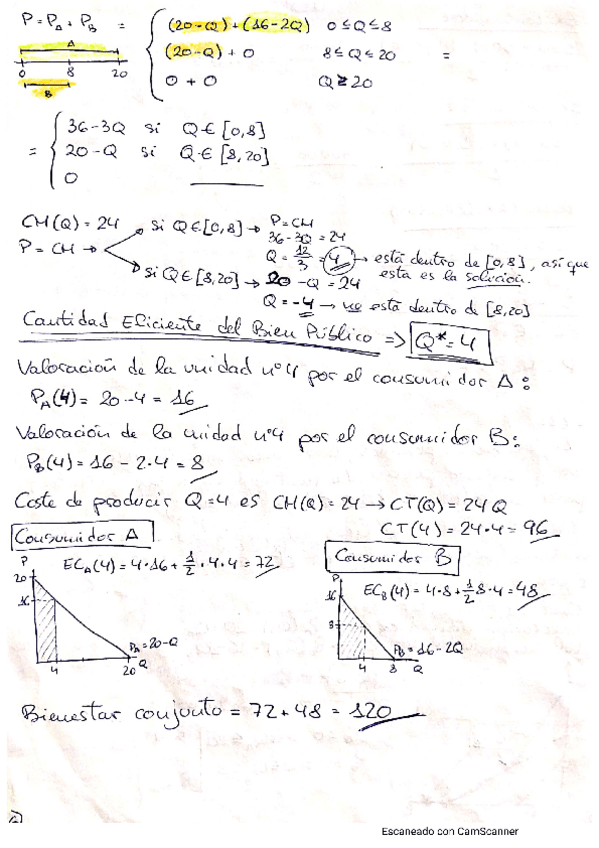 P = PA + PB = { (20-Q) + (16-2Q) 0 ≤ Q ≤ 8
(20-Q) + 0 8 ≤ Q ≤ 20 =
0 + 0 Q ≥ 20
A
0 8 20
B
= { 36-3Q si Q ∈ [0,8]
20-Q si Q ∈ [8,20]
0
CM(Q) = 24
P = CM →
si Q ∈ [0,8] → P = CM
36-3Q = 24
Q = 12/3 = 4 → está dentro de [0,8], así que
esta es la solución.
si Q ∈ [8,20] → 20 - Q = 24
Q = -4 → no está dentro de [8,20]
Cantidad Eficiente del Bien Público => Q* = 4
Valoración de la unidad nº4 por el consumidor A:
PA(4) = 20-4 = 16
Valoración de la unidad nº4 por el consumidor B:
PB(4) = 16 - 2·4 = 8
Coste de producir Q=4 es CM(Q) = 24 → CT(Q) = 24Q
CT(4) = 24·4 = 96
Consumidor A
ECA(4) = 4·16 + 1/2 · 4·4 = 72
P
20
16
PA = 20-Q
4 20 Q
Consumidor B
ECB(4) = 4·8 + 1/2 8·4 = 48
P
16
8
PB = 16-2Q
4 8 Q
Bienestar conjunto = 72 + 48 = 120
Escaneado con CamScanner